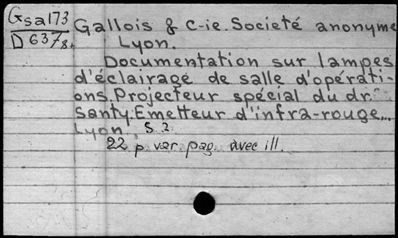 Gsa173
D 6378.
Gallois & C-ie. Societé anonyme
Lyon.
Documentation sur lampes
d'éclairage de salle d'opérati-
ons. Projecteur spécial du dr
Santy. Emetteur d'infra-rouge...
Lyon, s. a.
22 p. var. pag. avec ill.